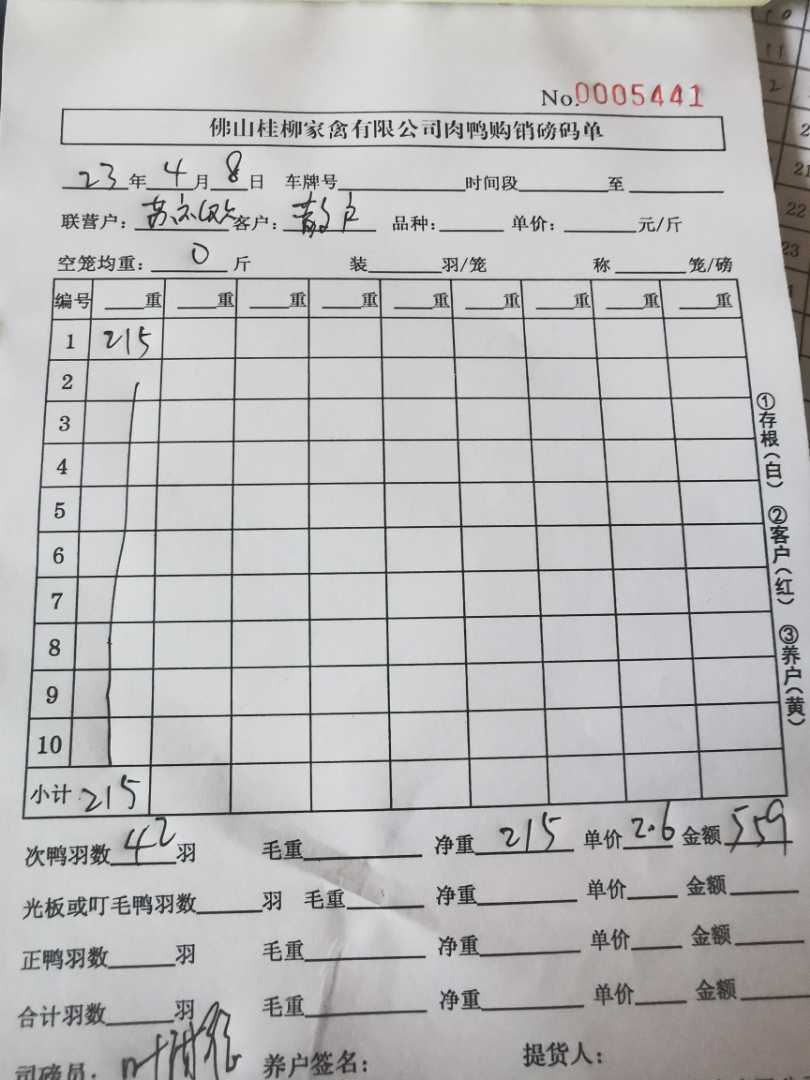 No.0005441
佛山桂柳家禽有限公司肉鸭购销磅码单
23年4月8日 车牌号 时间段 至
联营户: 客户:散户 品种: 单价: 元/斤
空笼均重: 0 斤 装 羽/笼 称 笼/磅
编号 重 重 重 重 重 重 重 重 重
1 215
2
3
4
5
6
7
8
9
10
小计 215
次鸭羽数 42 羽 毛重 净重 215 单价 2.6 金额 559
光板或叮毛鸭羽数 羽 毛重 净重 单价 金额
正鸭羽数 羽 毛重 净重 单价 金额
合计羽数 羽 毛重 净重 单价 金额
司磅员: 养户签名: 提货人:
①存根(白) ②客户(红) ③养户(黄)
10
11
2
21
22
23